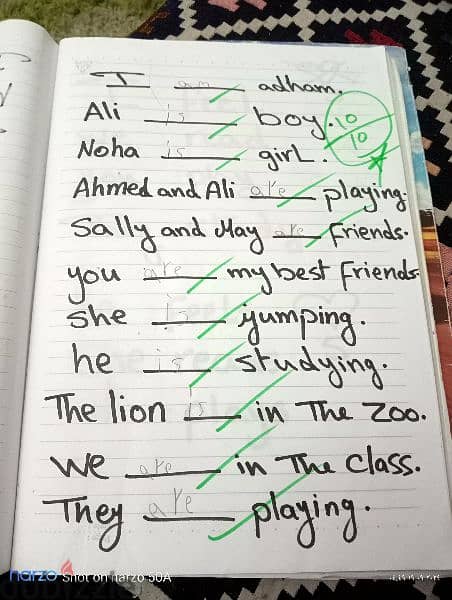 I am adham.
Ali is boy.
10
10
Noha is girl.
Ahmed and Ali are playing.
Sally and May are friends.
you are my best friends
she is yumping.
he is studying.
The lion is in The Zoo.
we are in The class.
They are playing.
narzo Shot on narzo 50A